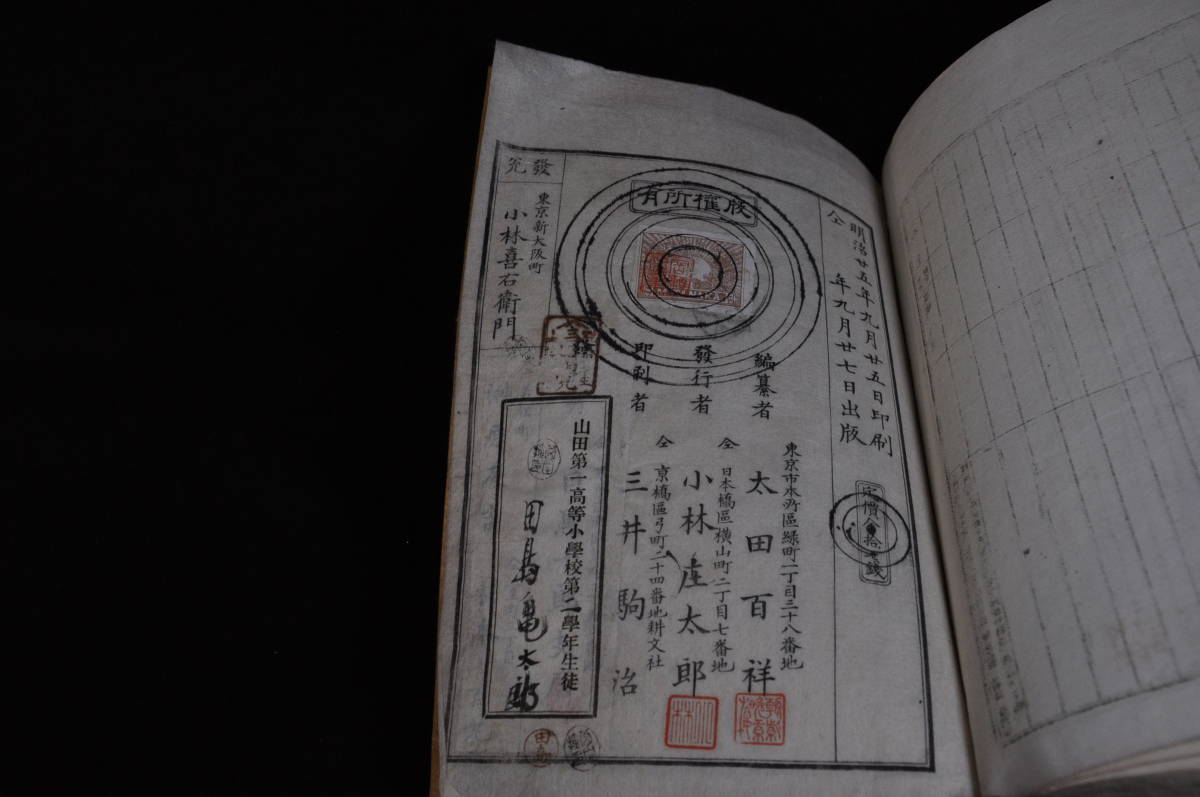 明治廿五年九月廿五日印刷
仝 年九月廿七日出版
版權所有
編纂者
東京市本所區緑町一丁目三十八番地
太田百祥
發行者
仝 日本橋區横山町二丁目七番地
小林庄太郎
印刷者
仝 京橋區弓町二十四番地耕文社
三井駒治
小林
發兌
東京新大阪町
小林喜右衛門
山田第一高等小學校第二學年生徒
田島亀太郎
田島